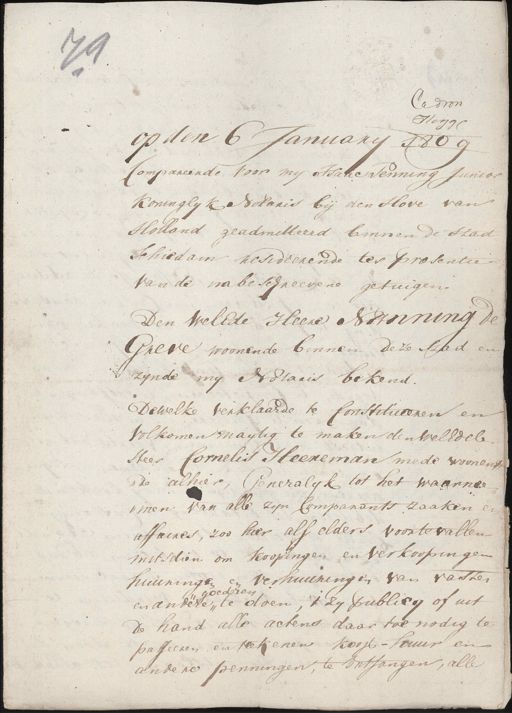 79
op den 6 January 1809
Compareerde voor my Isaac Penning Junior
Koninglyk Notaris bij den Hove van
Holland geadmitteerd binnen de stad
Schiedam resideerende ter presentie
van de nabeschreevene getuigen
Den Weled Heere Nanning de
Greve woonende binnen deze stad en
zynde my Notaris bekend.
Dewelke verklaarde te Constitueeren en
volkomen magtig te maken den WelEdele
Heer Cornelis Heereman mede woonen
de alhier, Generalyk tot het waarnee
men van alle zyn Comparants zaaken en
affaires, zoo hier als elders voortevallen
mitsdien om koopingen en verkoopingen
huuringe en verhuuringe van vaste
goederen
en andere te doen, 't zy publicq of uit
de hand alle actens daar toe nodig te
passeeren en tekenen koop- huur en
andere penningen, te ontfangen, alle